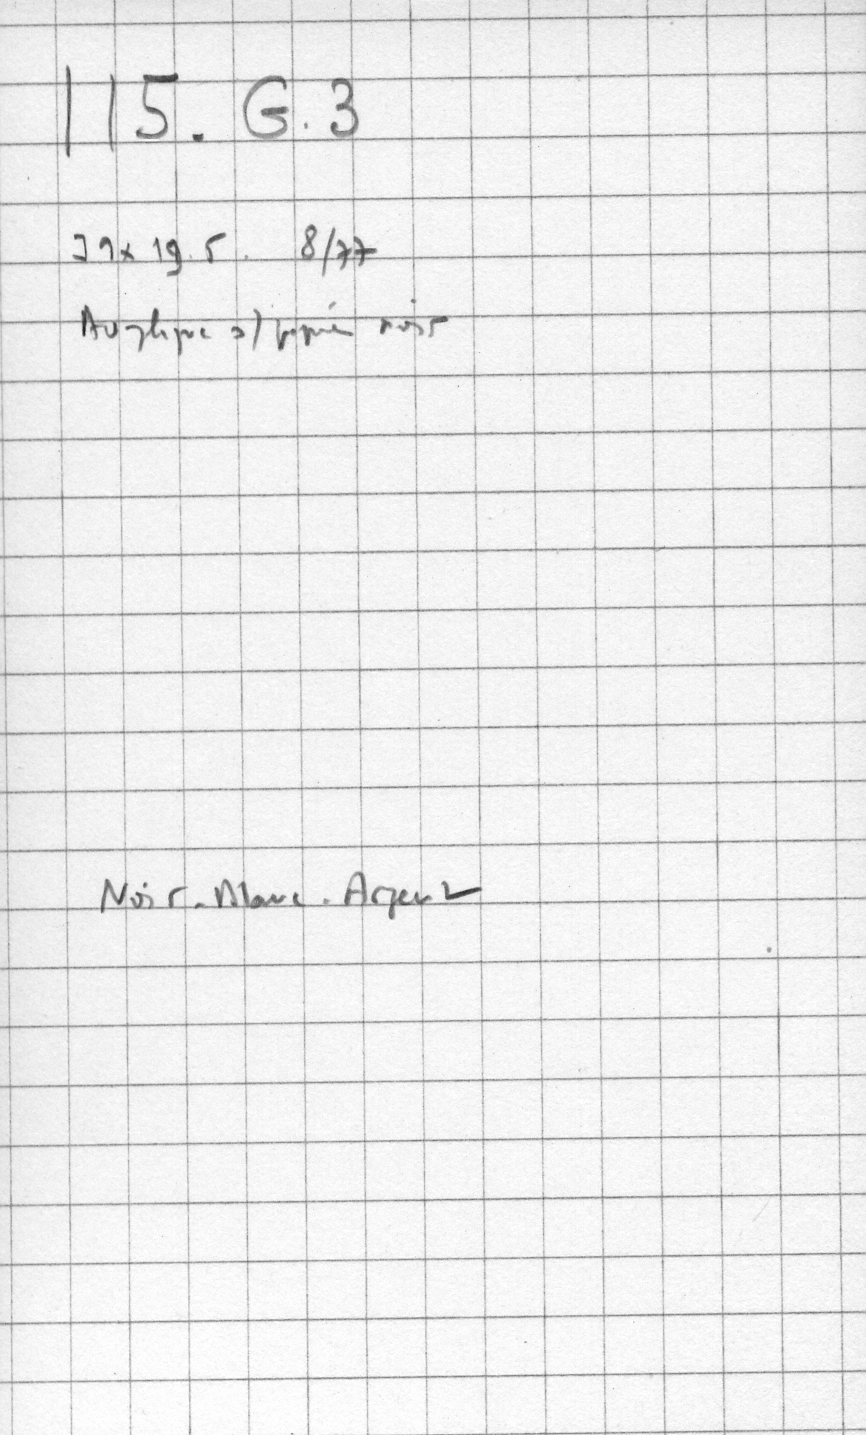 115. G. 3
19.5. 8/77
Acrylique s/ papier noir
Noir. Blanc. Argent